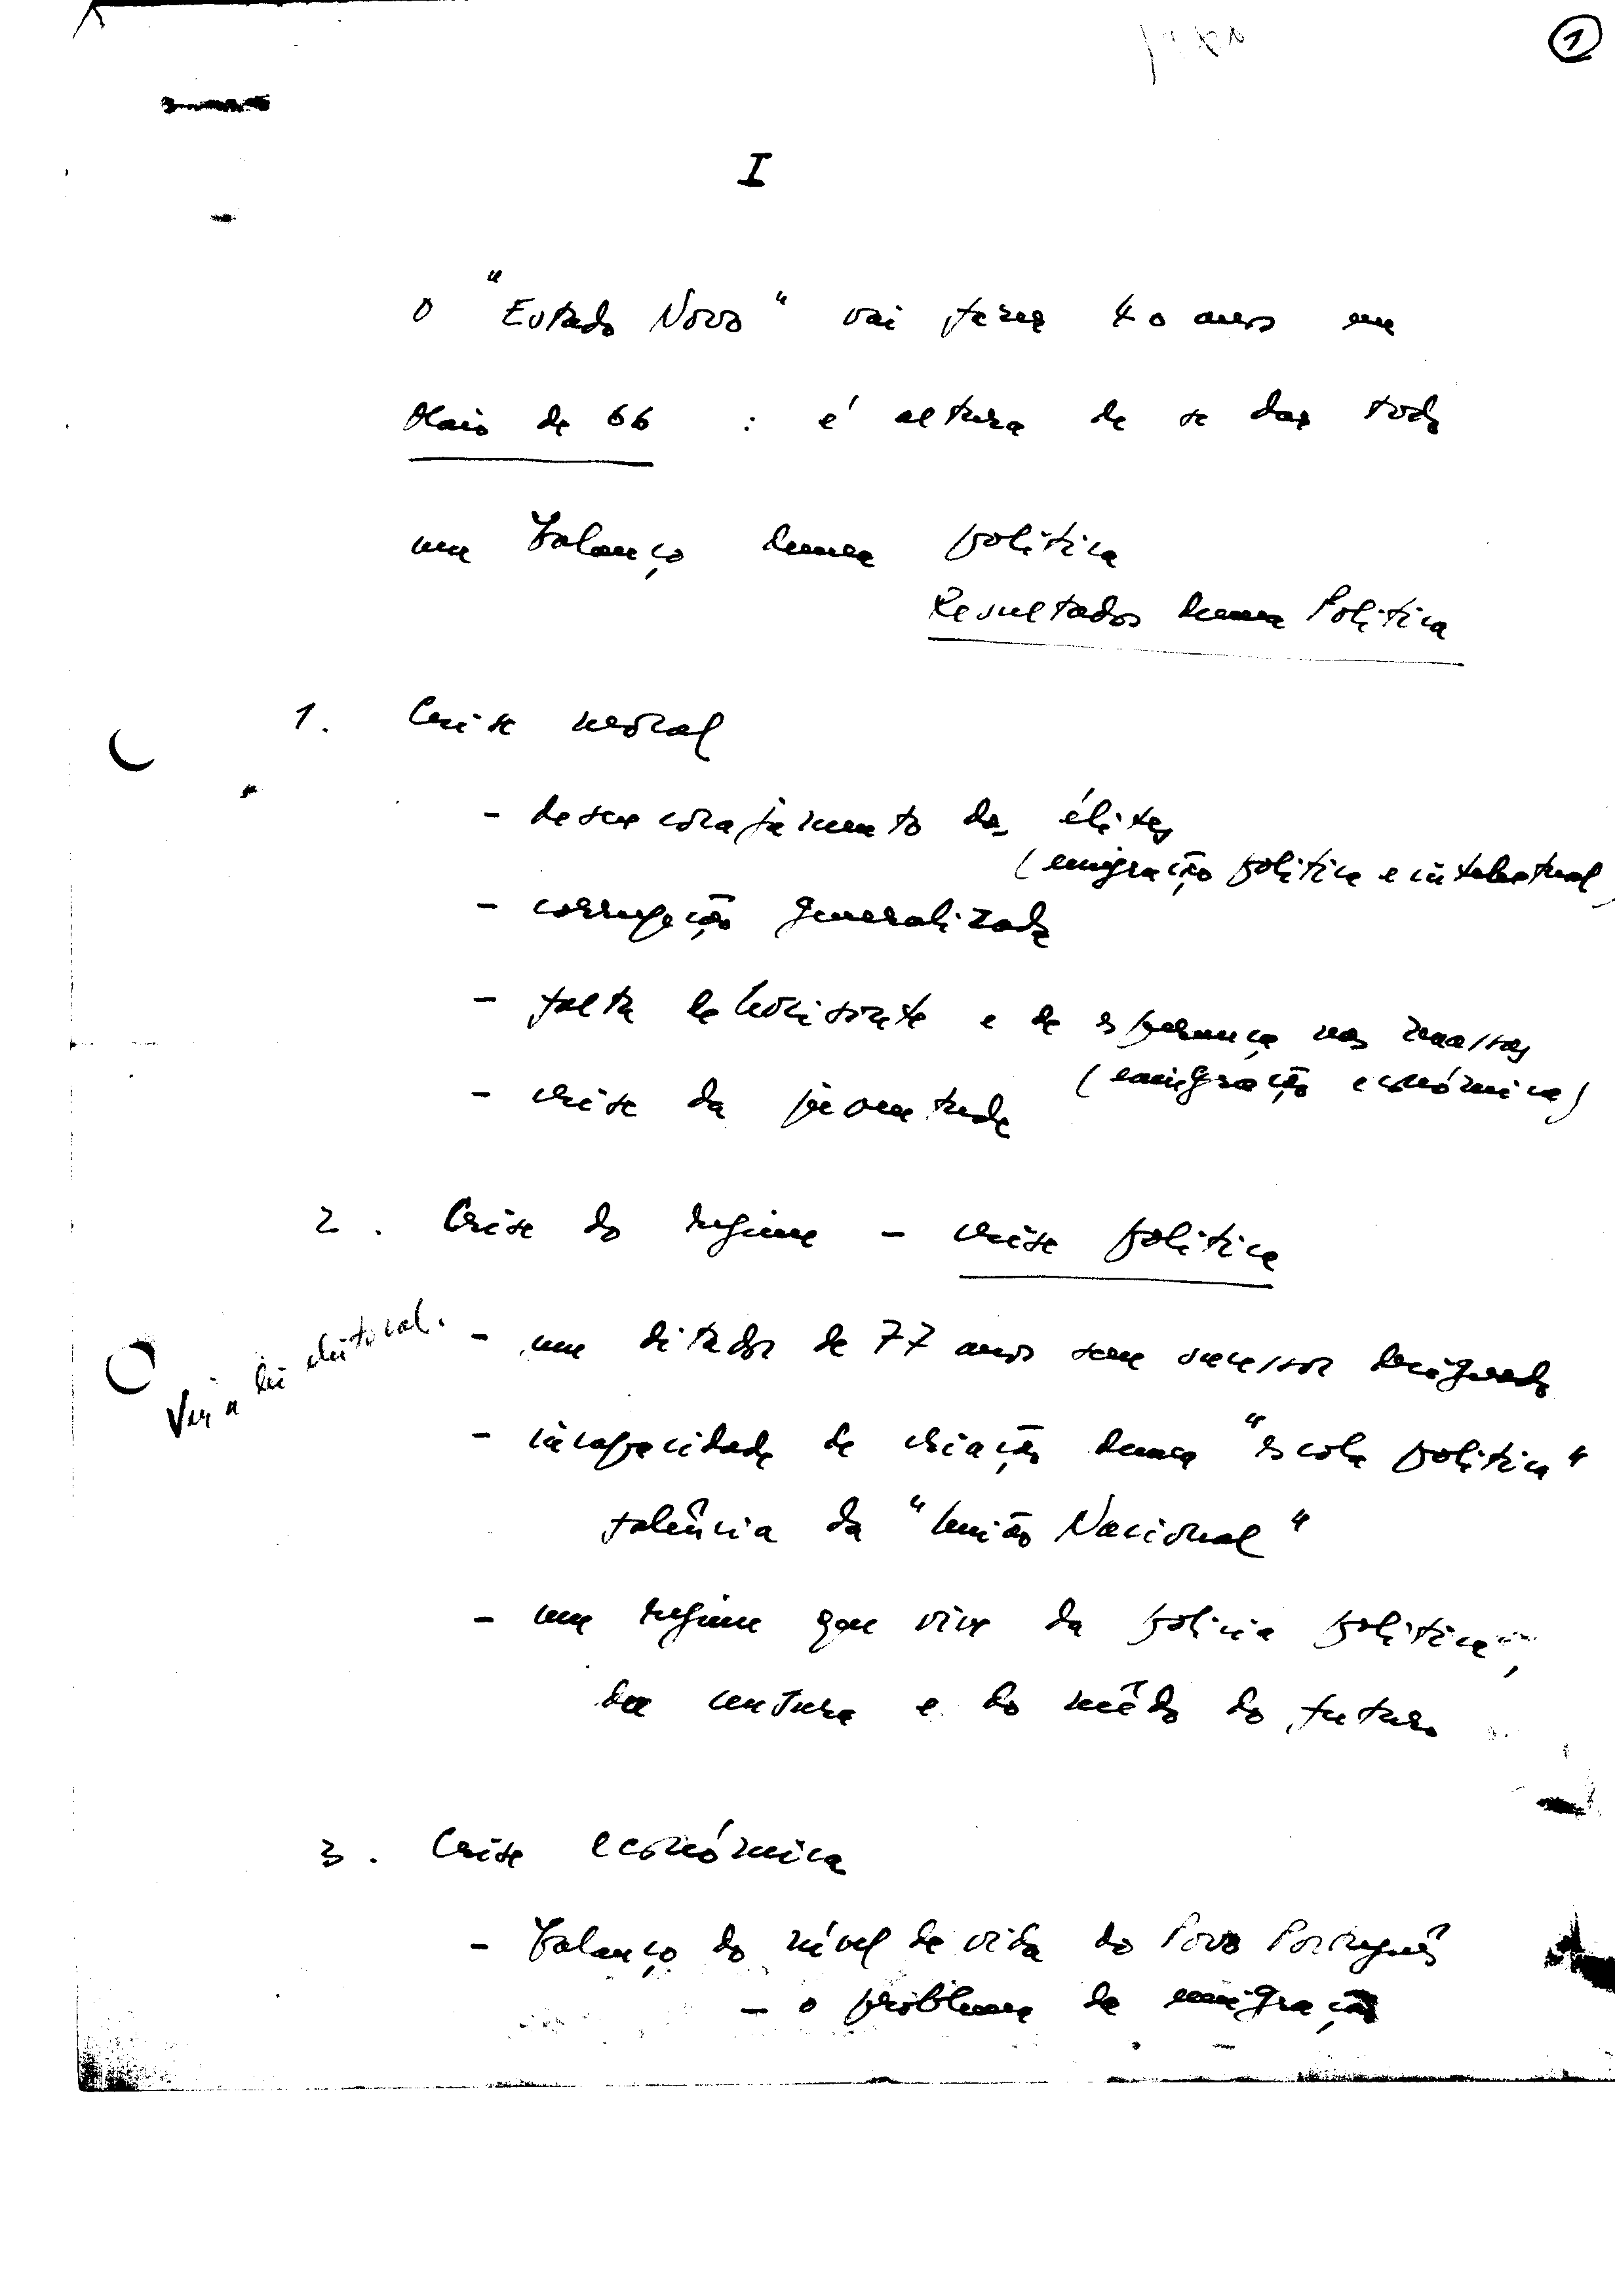 1
I
O "Estado Novo" vai fazer 40 anos em
Maio de 66 : é altura de se dar toda
um balanço duma política
Resultados duma Política
1. Crise moral
- desencorajamento das élites
(emigração política e intelectual)
- corrupção generalizada
- falta de horisonte e de esperança nas massas
(emigração económica)
- crise da juventude
2. Crise do regime - crise política
Ver a lei eleitoral.
- um ditador de 77 anos sem sucessor designado
- incapacidade de criação duma "escola política"
falência da "União Nacional"
- um regime que vive da polícia política,
da censura e do mêdo do futuro
3. Crise económica
- balanço do nível de vida do Povo Português
- o problema da emigração